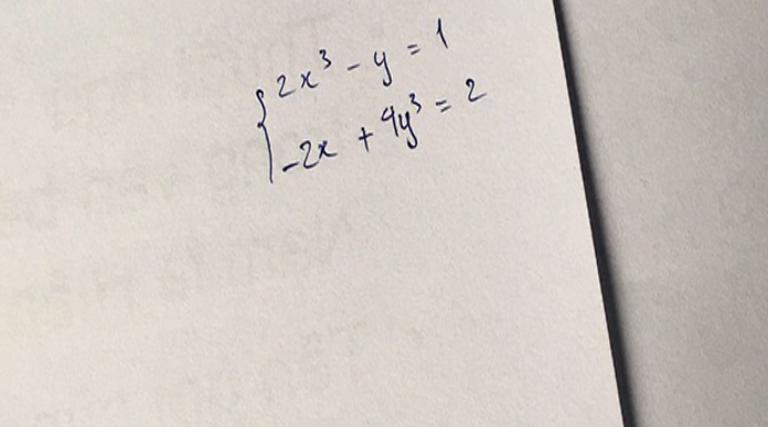 2x³ - y = 1
-2x + 4y³ = 2